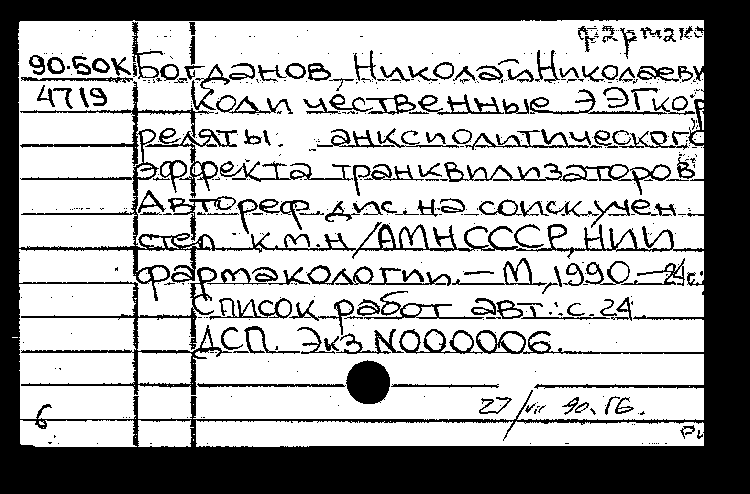 фармако
90-50К Богданов Николай Николаеви
4719 Количественные ЭЭГкор
реляты анксиолитического
эффекта транквилизаторов
Автореф. дис. на соиск. учен
степ к.м.н/АМНСССР, НИИ
фармакологии. — М., 1990. — 24с.;
Список работ авт.: с.24
ДСП. Экз N000006.
27/VII 90. ГБ.
6
Ри